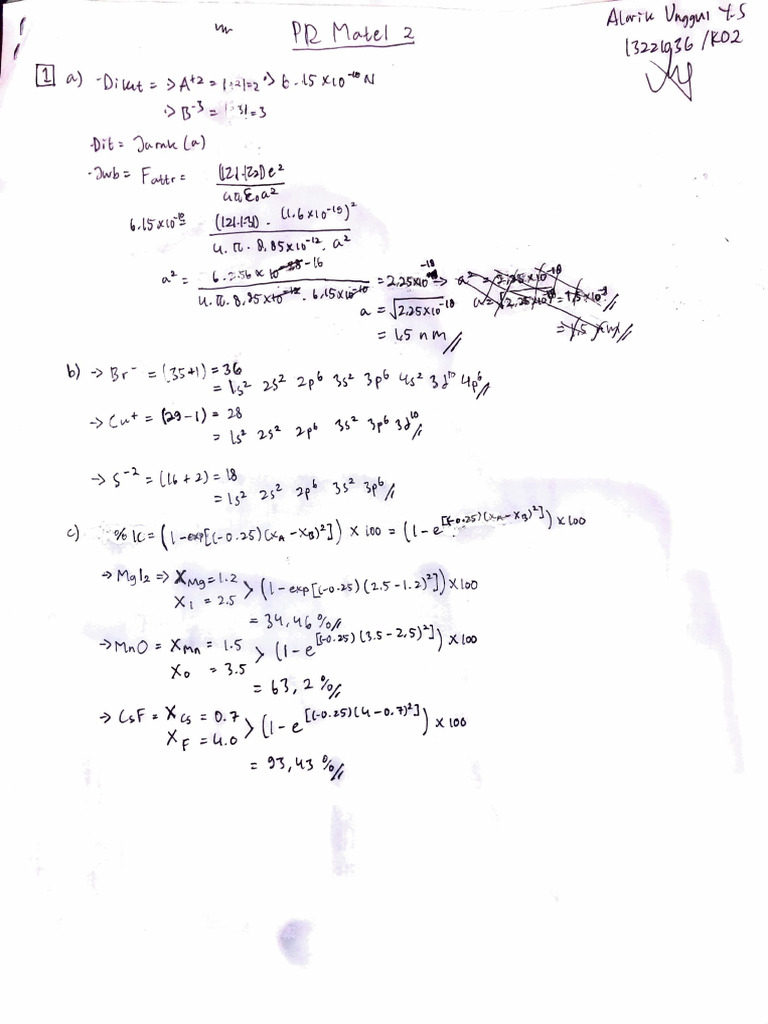 PR Matel 2
Alarik Unggul Y.S
13221036 / K02
1 a) -Diket = => A+2 = |2|=2 => 6.15x10^-10 N
=> B-3 = |-3|=3
-Dit = Jarak (a)
-Jwb = Fattr = (|Z1|.|Z2|) e² / 4πε₀a²
6.15x10^-10 = (|2|.|-3|) . (1.6x10^-19)² / 4.π. 8,85x10^-12 . a²
a² = / 4.π. 8.85x10^-12 . 6.15x10^-10 = 2,25x10^-18
a = √2,25x10^-18
= 1.5 nm //
b) → Br⁻ = (35+1) = 36
= 1s² 2s² 2p⁶ 3s² 3p⁶ 4s² 3d¹⁰ 4p⁶ //
→ Cu⁺ = (29-1) = 28
= 1s² 2s² 2p⁶ 3s² 3p⁶ 3d¹⁰ //
→ S⁻² = (16+2) = 18
= 1s² 2s² 2p⁶ 3s² 3p⁶ //
c) % IC = (1-exp[(-0.25)(XA-XB)²]) x 100 = (1-e^[(-0.25)(XA-XB)²]) x 100
→ MgI2 => XMg = 1.2
XI = 2.5 > (1-exp[(-0.25)(2.5-1.2)²]) x 100
= 34,46 % //
→ MnO = XMn = 1.5
XO = 3.5 > (1-e^[(-0.25)(3.5-2,5)²]) x 100
= 63,2 % //
→ CsF = XCs = 0.7
XF = 4.0 > (1-e^[(-0.25)(4-0.7)²]) x 100
= 93,43 % //